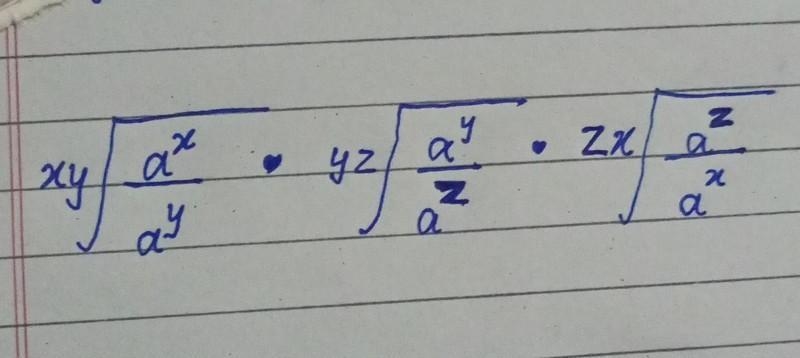 $\sqrt[xy]{\frac{a^x}{a^y}} \cdot \sqrt[yz]{\frac{a^y}{a^z}} \cdot \sqrt[zx]{\frac{a^z}{a^x}}$